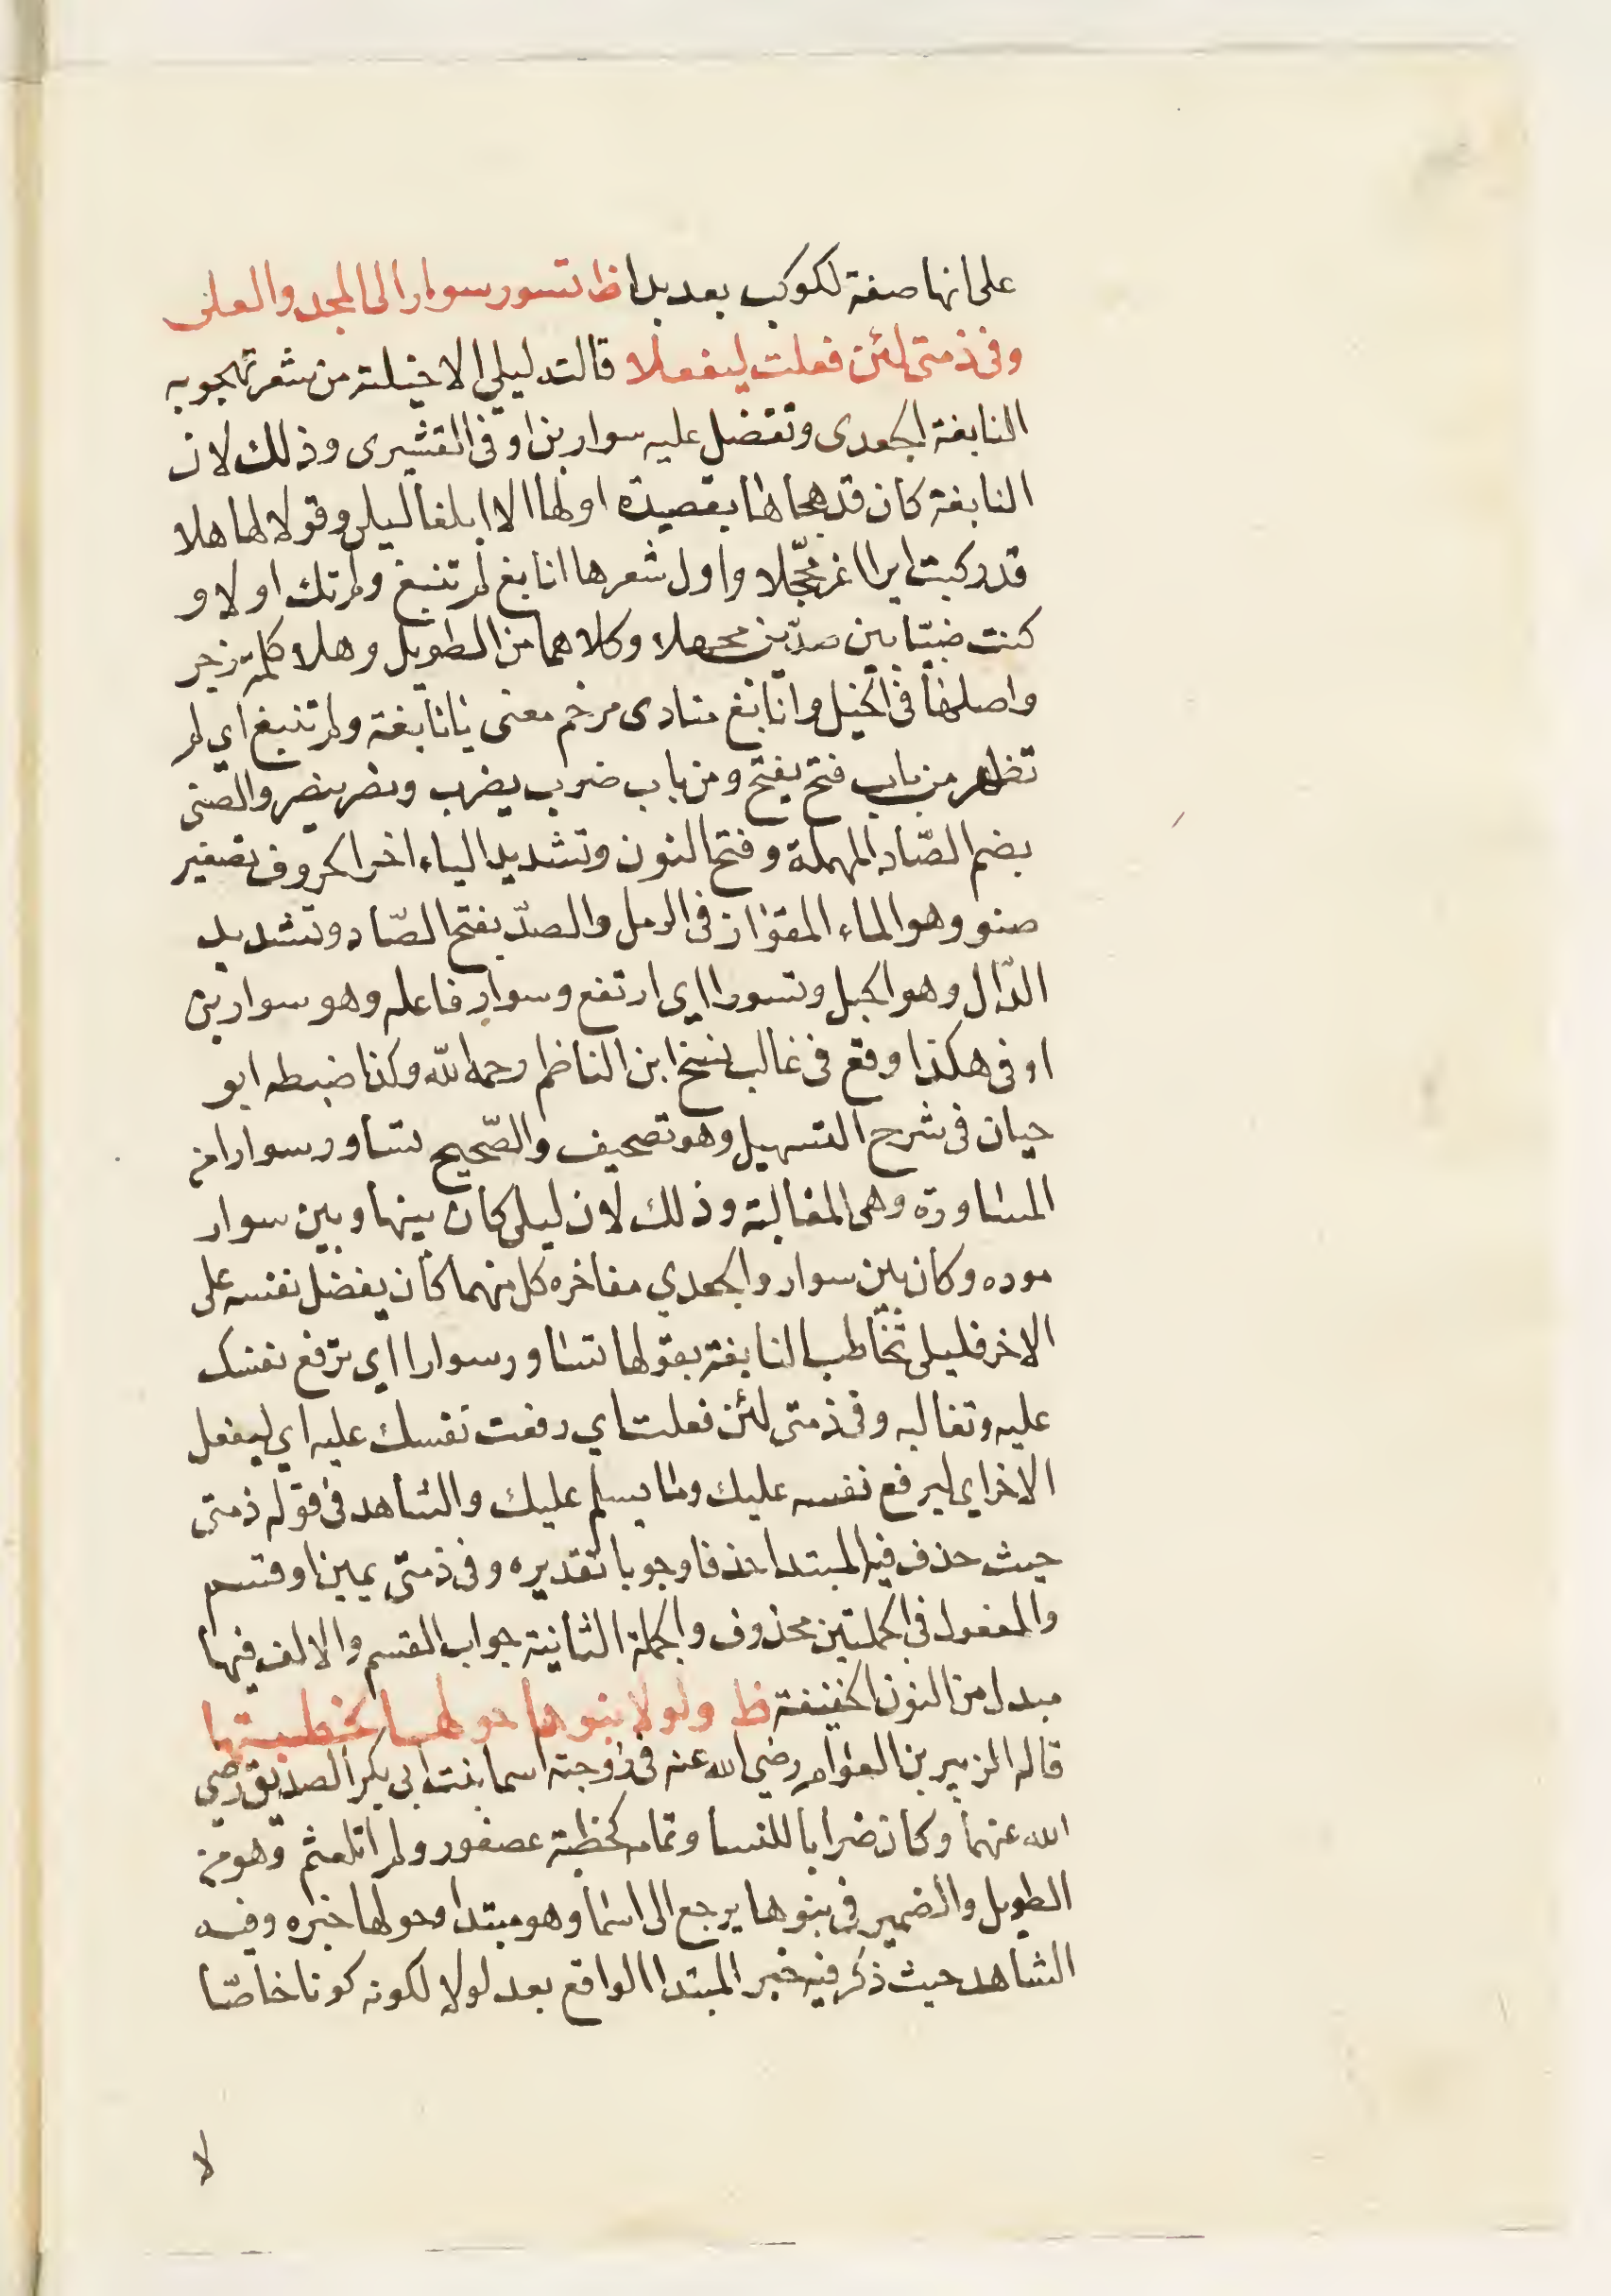 على انها صفة لكوكب بعد بدا ظ تسور سوار الى المجد والعلى
وفى ذمتى لئن فعلت ليفعلا قالته ليلى الاخيلية من شعر تهجو به
النابغة الجعدى وتفضل عليه سوار بن اوفى القشيرى وذلك لان
النابغة كان قد هجاها بقصيدة اولها الا ابلغا ليلى وقولا لها هلا
قد ركبت ايرا اغر محجّلا واول شعرها انابغ لم تنبغ ولم تك اولا و
كنت صنيّا بين صدّين مجهلا وكلاهما من الطويل وهلا كلمة زجر
واصلها فى الخيل وانابغ منادى مرخم معنى يا نابغة ولم تنبغ اي لم
تظهر من باب فتح يفتح ومن باب ضرب يضرب ونصر ينصر والصنى
بضم الصّاد المهملة وفتح النون وتشديد الياء اخر الحروف تصغير
صنو وهو الماء المقوّاز فى الرمل والصدّ بفتح الصّاد وتشديد
الدّال وهو الجبل وتسورا اي ارتفع وسوار فاعله وهو سوار بن
اوفى هكذا وقع فى غالب نسخ ابن الناظم رحمه الله وكذا ضبطه ابو
حيان فى شرح التسهيل وهو تصحيف والصّحيح تساور سوارا من
المساورة وهى المغالبة وذلك لان ليلى كان بينها وبين سوار
موده وكان بين سوار والجعدي مفاخره كل منهما كان يفضل نفسه على
الاخر فليلى تخاطب النابغة بقولها تساور سوارا اي ترفع نفسك
عليه وتغالبه وفى ذمتى لئن فعلت اي رفعت نفسك عليه اي ليفعل
الاخر اي ليرفع نفسه عليك وما يسلم عليك والشاهد فى قوله ذمتى
حيث حذف فيه المبتدا حذفا وجوبا تقديره وفى ذمتى يمين او قسم
والمفعول فى الجملتين محذوف والجملة الثانية جواب القسم والالف فيها
مبدل من النون الخفيفة ظ ولولا بنوها حولها لخطبتها
قاله الزبير بن العوام رضي الله عنه فى زوجته اسما بنت ابى بكر الصديق رضي
الله عنهما وكان ضرابا للنسا وتمامه كخطبة عصفور ولم اتلعثم وهو من
الطويل والضمير فى بنوها يرجع الى اسما وهو مبتدا وحولها خبره وفيه
الشاهد حيث ذكر فيه خبر المبتدا الواقع بعد لولا لكونه كونا خاصّا
لا